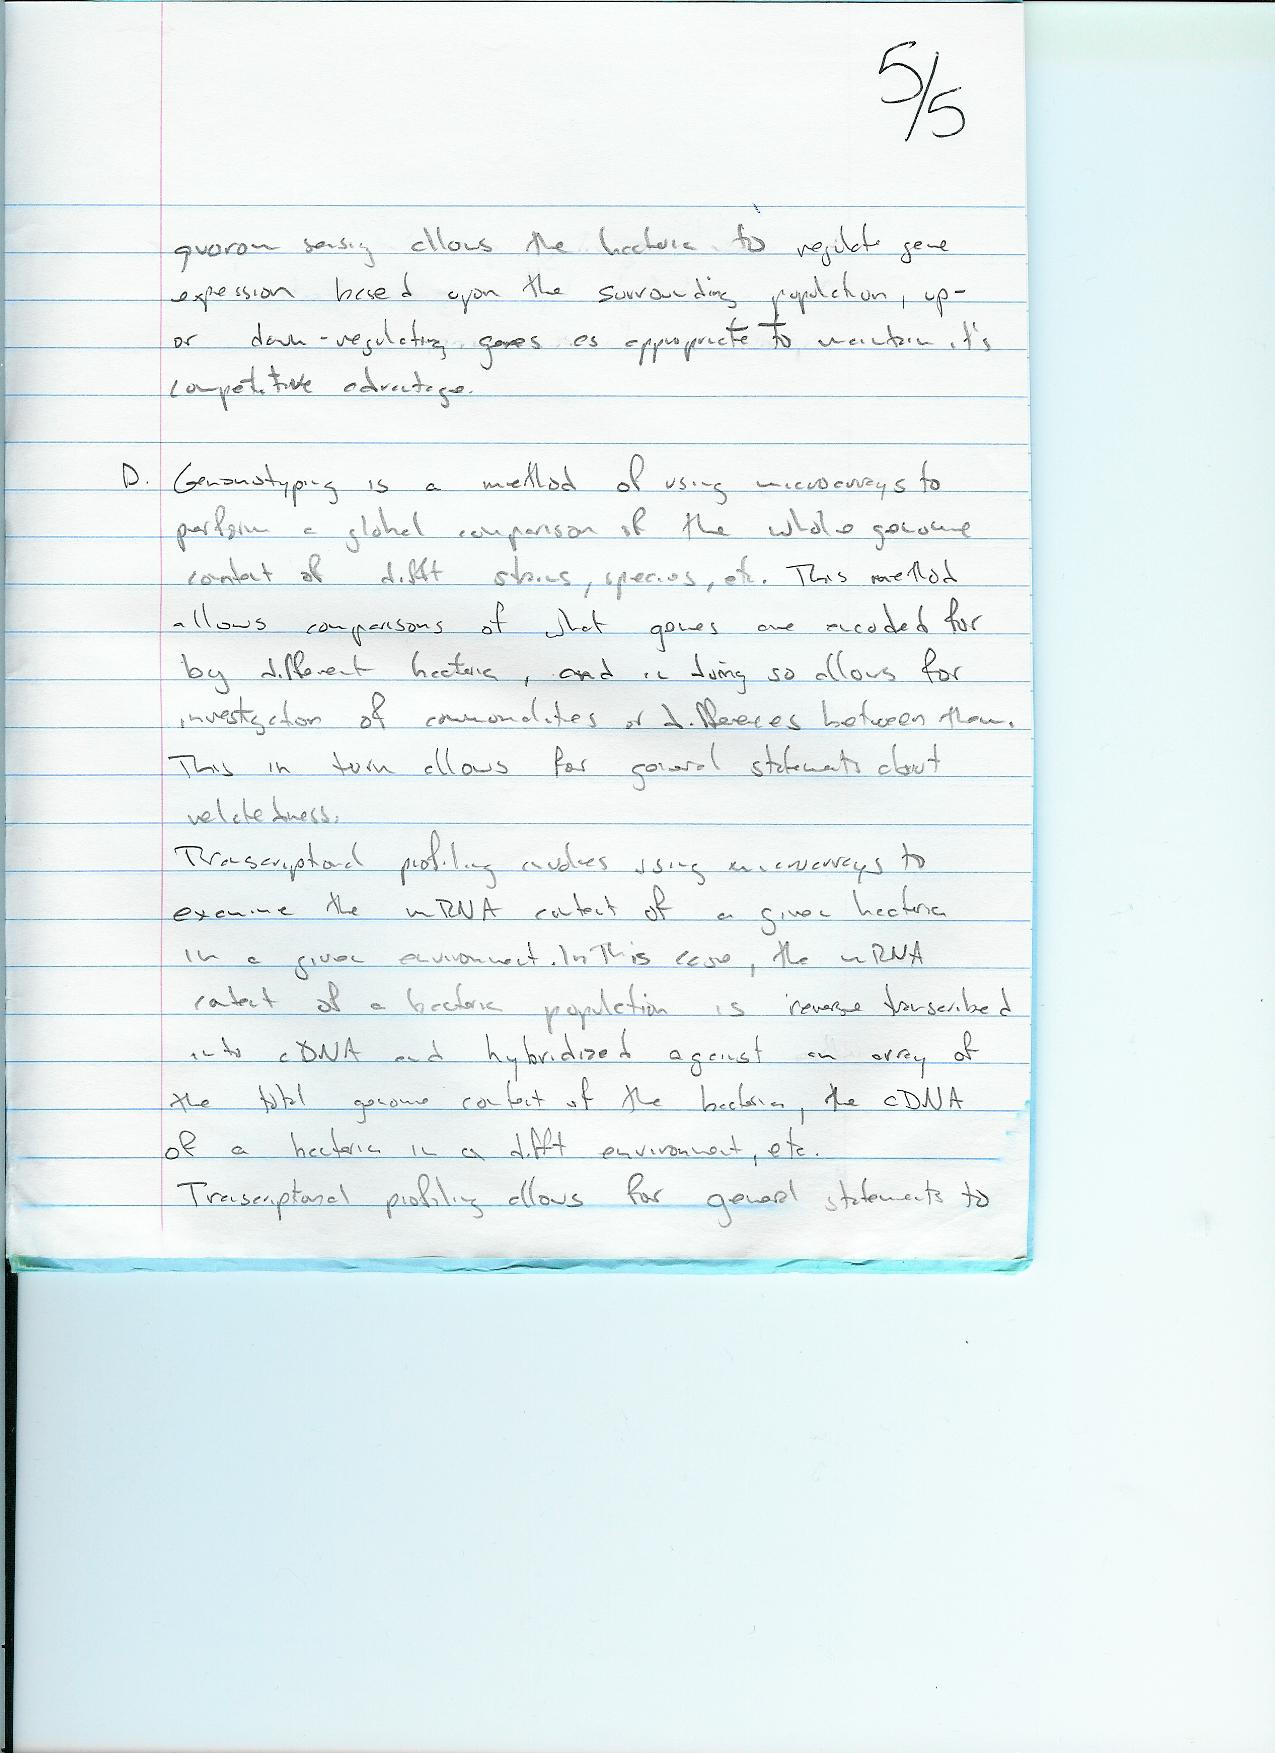 5/5
quorom sensing allows the bacteria to regulate gene
expression based upon the surrounding population, up-
or down-regulating genes as appropriate to maintain it's
competitive advantage.
D. Genomotyping is a method of using microarrays to
perform a global comparison of the whole genome
content of difft strains, species, etc. This method
allows comparisons of what genes are encoded for
by different bacteria, and in doing so allows for
investigation of commonalities or differences between them.
This in turn allows for general statements about
relatedness.
Transcriptional profiling involves using microarrays to
examine the mRNA content of a given bacteria
in a given environment. In this case, the mRNA
content of a bacteria population is reverse transcribed
into cDNA and hybridized against an array of
the total genome content of the bacteria, the cDNA
of a bacteria in a difft environment, etc.
Transcriptional profiling allows for general statements to